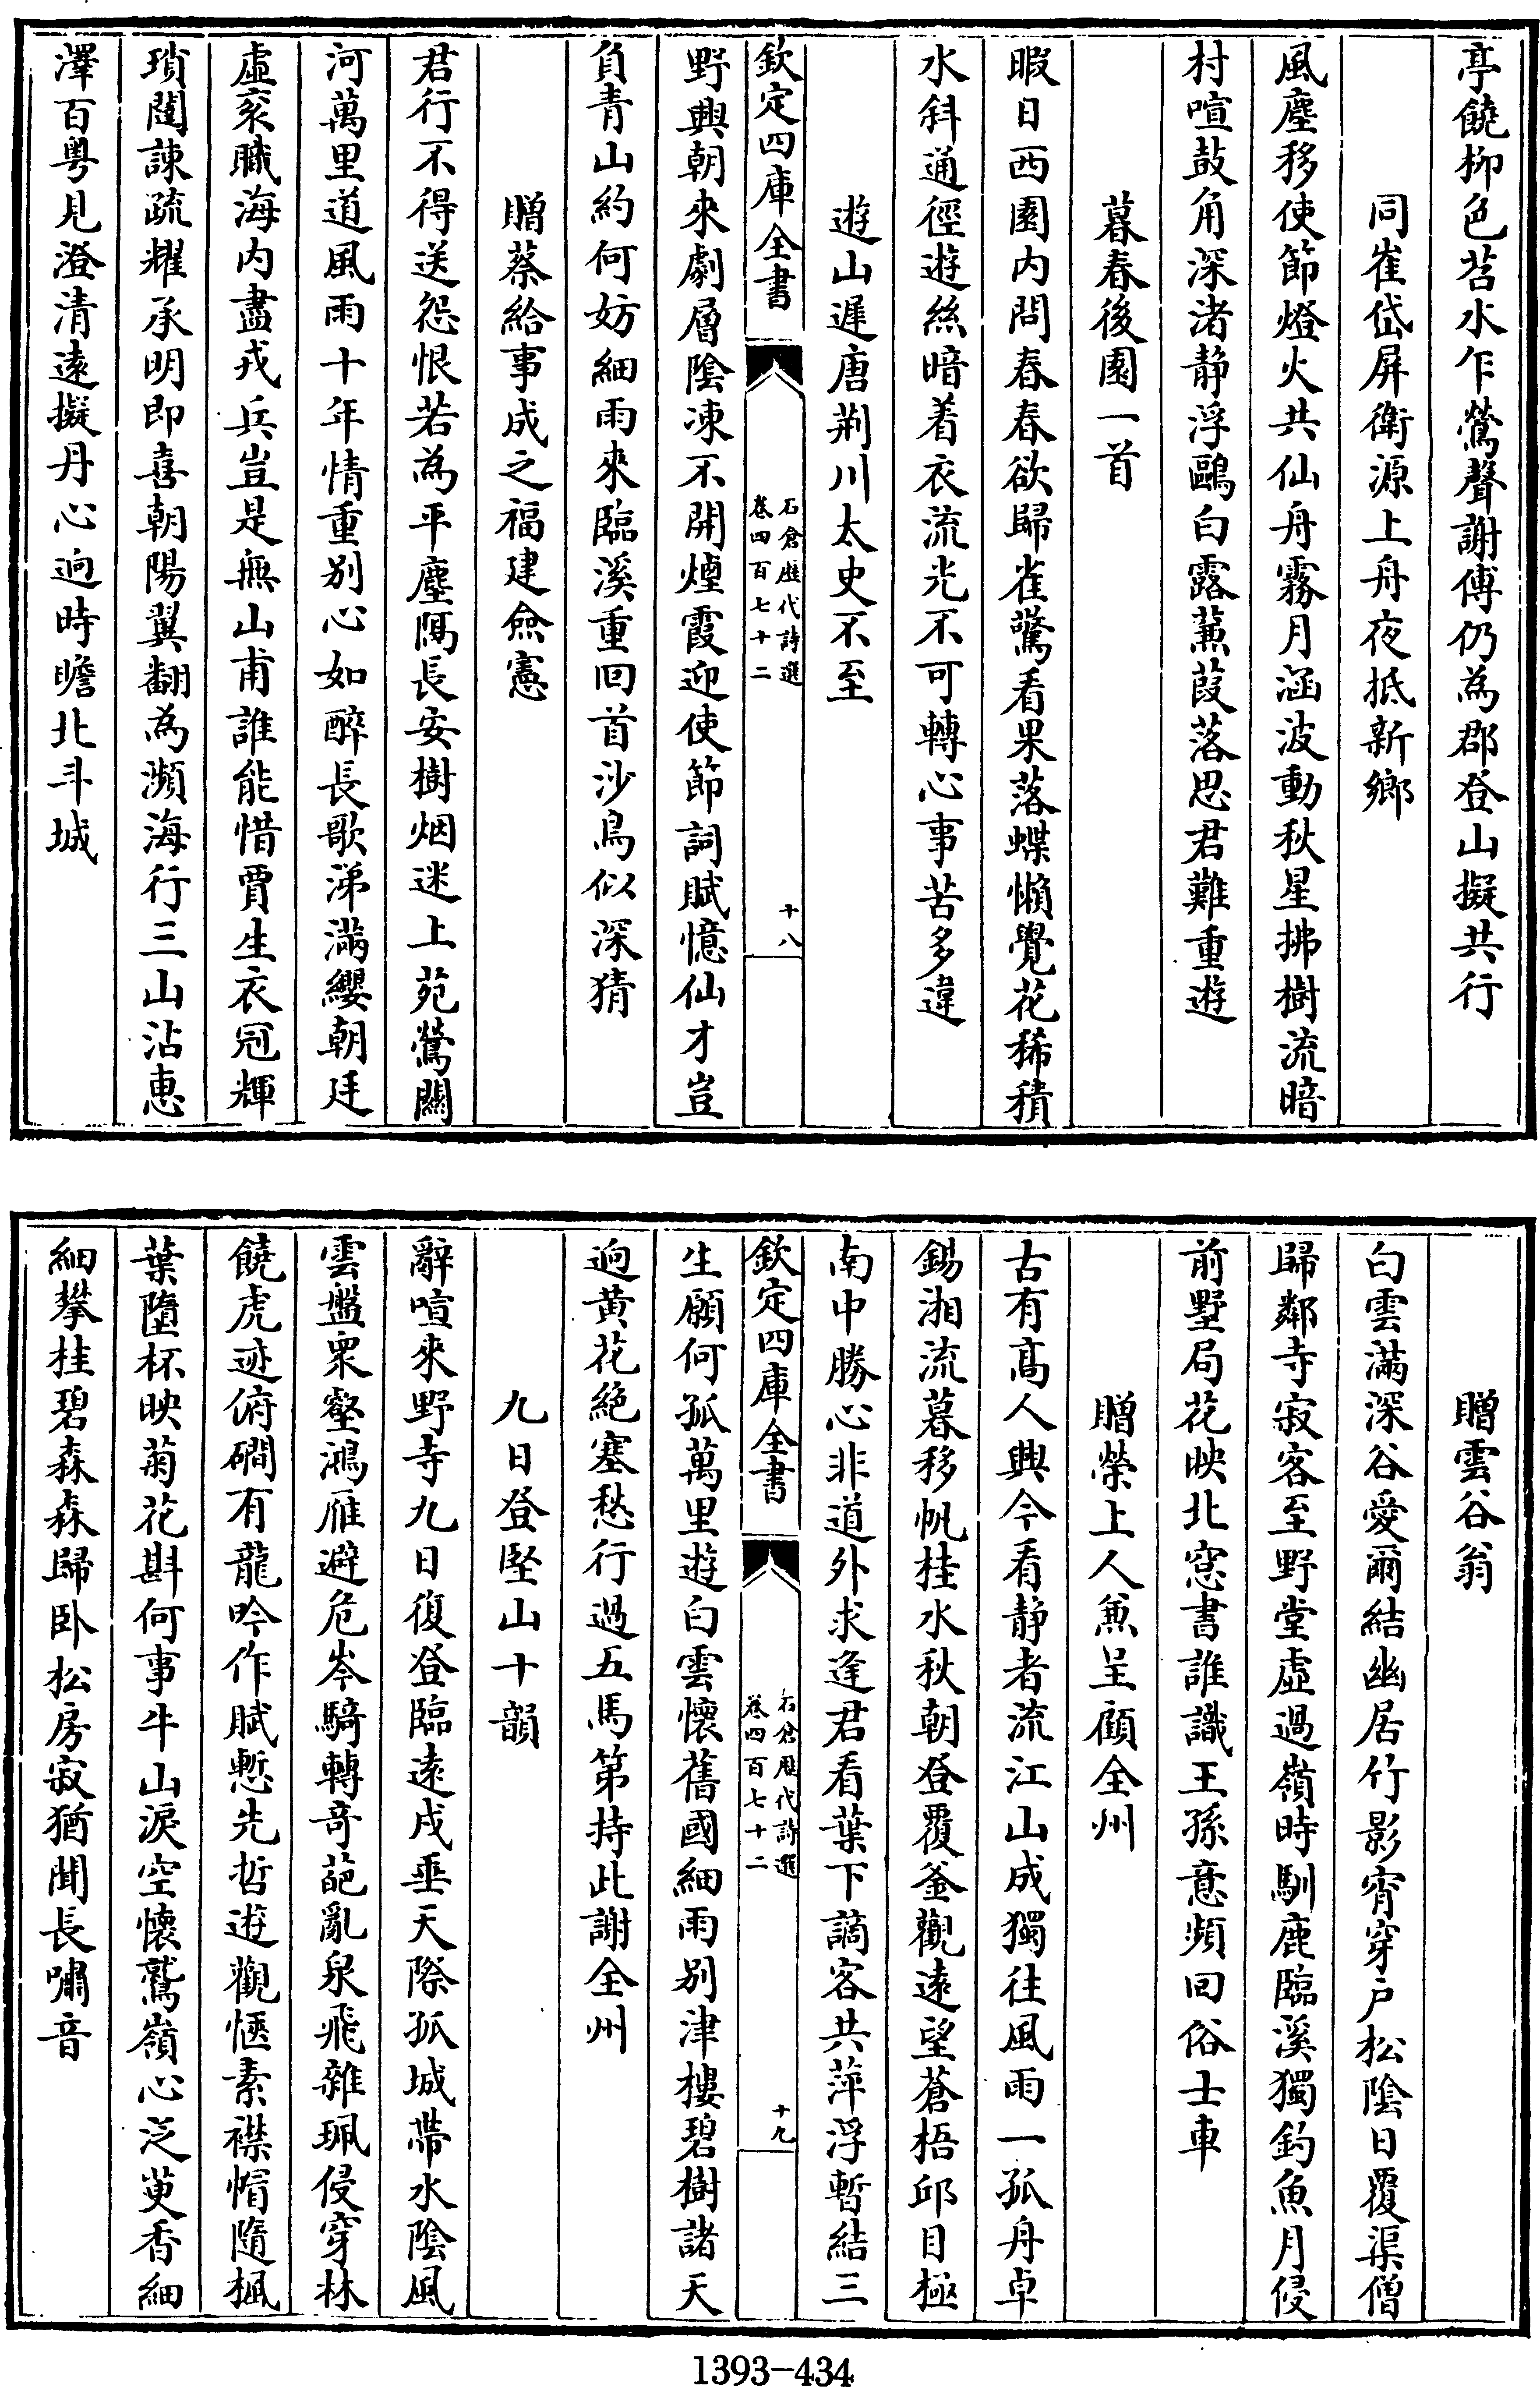 亭饒柳色苕水乍鶯聲謝傅仍為郡登山擬共行
同崔岱屏衛源上舟夜抵新鄉
風塵移使節燈火共仙舟霧月涵波動秋星拂樹流暗
村喧鼓角深渚静浮鷗白露蒹葭落思君難重遊
暮春後園一首
暇日西園内問春春欲歸雀驚看果落蝶懶覺花稀積
水斜通徑遊絲暗着衣流光不可轉心事苦多違
遊山遲唐荆川太史不至
欽定四庫全書
石倉歴代詩選
卷四百七十二
十八
野興朝來劇層陰凍不開煙霞迎使節詞賦憶仙才豈
負青山約何妨細雨來臨溪重回首沙鳥似深猜
贈蔡給事成之福建僉憲
君行不得送怨恨若為平塵隔長安樹烟迷上苑鶯關
河萬里道風雨十年情重别心如醉長歌涕滿纓朝廷
虛衮職海内盡戎兵豈是無山甫誰能惜賈生衣冠輝
瑣闥諫疏耀承明即喜朝陽翼翻為瀕海行三山沾惠
澤百粤見澄清遠擬丹心逈時瞻北斗城
贈雲谷翁
白雲滿深谷愛爾結幽居竹影宵穿户松陰日覆渠僧
歸鄰寺寂客至野堂虛過嶺時馴鹿臨溪獨釣魚月侵
前墅局花映北窓書誰識王孫意頻回俗士車
贈榮上人兼呈顧全州
古有髙人興今看静者流江山成獨往風雨一孤舟卓
錫湘流暮移帆桂水秋朝登覆釜觀遠望蒼梧邱目極
南中勝心非道外求逢君看葉下謫客共萍浮暫結三
欽定四庫全書
石倉歴代詩選
卷四百七十二
十九
生願何孤萬里遊白雲懷舊國細雨别津樓碧樹諸天
逈黄花絶塞愁行過五馬第持此謝全州
九日登堅山十韻
辭喧來野寺九日復登臨遠戍垂天際孤城帶水陰風
雲盤衆壑鴻雁避危岑騎轉奇葩亂泉飛雜珮侵穿林
饒虎迹俯磵有龍吟作賦慙先哲遊觀愜素襟帽隨楓
葉墮杯映菊花斟何事牛山淚空懷鷲嶺心泛萸香細
細攀桂碧森森歸卧松房寂猶聞長嘯音
1393-434